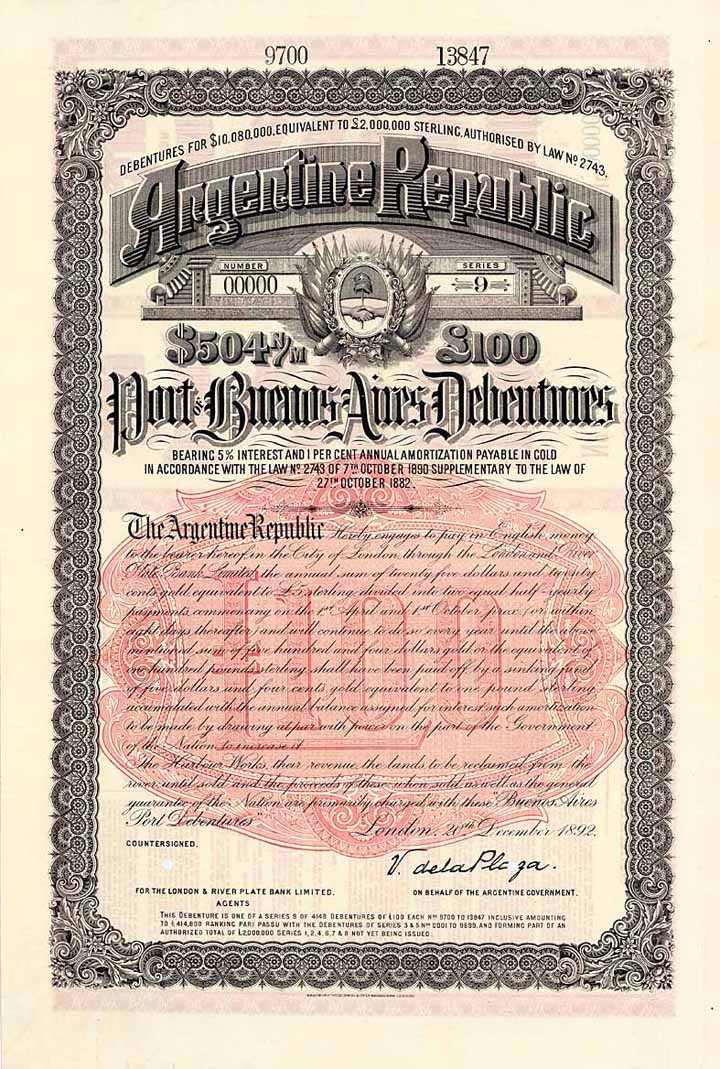 9700 13847
DEBENTURES FOR $10,080,000, EQUIVALENT TO £2,000,000 STERLING, AUTHORISED BY LAW No. 2743.
Argentine Republic
NUMBER SERIES
00000 9
$504 N/M £100
Port of Buenos Aires Debentures
BEARING 5% INTEREST AND 1 PER CENT ANNUAL AMORTIZATION PAYABLE IN GOLD
IN ACCORDANCE WITH THE LAW No. 2743 OF 7TH OCTOBER 1890 SUPPLEMENTARY TO THE LAW OF
27TH OCTOBER 1882.
The Argentine Republic Hereby engages to pay in English money
to the bearer hereof, in the City of London, through the London and River
Plate Bank Limited, the annual sum of twenty five dollars and twenty
cents gold, equivalent to £5 sterling, divided into two equal half-yearly
payments, commencing on the 1st April and 1st October prox. (or within
eight days thereafter) and will continue to do so every year until the
mentioned sum of five hundred and four dollars gold or the equivalent of
one hundred pounds sterling shall have been paid off by a sinking fund
of five dollars and four cents gold equivalent to one pound sterling
accumulated with the annual balance assigned for interest such amortization
to be made by drawing at par with power on the part of the Government
of the Nation to increase it.
The Harbour Works, their revenue, the lands to be reclaimed from the
river until sold and the proceeds of these when sold as well as the general
guarantee of the Nation are primarily charged with these "Buenos Aires
Port Debentures"
London, 20th December 1892.
COUNTERSIGNED.
V. de la Plaza.
FOR THE LONDON & RIVER PLATE BANK LIMITED. ON BEHALF OF THE ARGENTINE GOVERNMENT.
AGENTS
THIS DEBENTURE IS ONE OF A SERIES 9 OF 4148 DEBENTURES OF £100 EACH Nos 9700 TO 13847 INCLUSIVE AMOUNTING
TO £414,800 RANKING PARI PASSU WITH THE DEBENTURES OF SERIES 3 & 5 Nos 0001 TO 9699, AND FORMING PART OF AN
AUTHORIZED TOTAL OF £2,000,000 SERIES 1, 2, 4, 6, 7 & 8 NOT YET BEING ISSUED.
£100